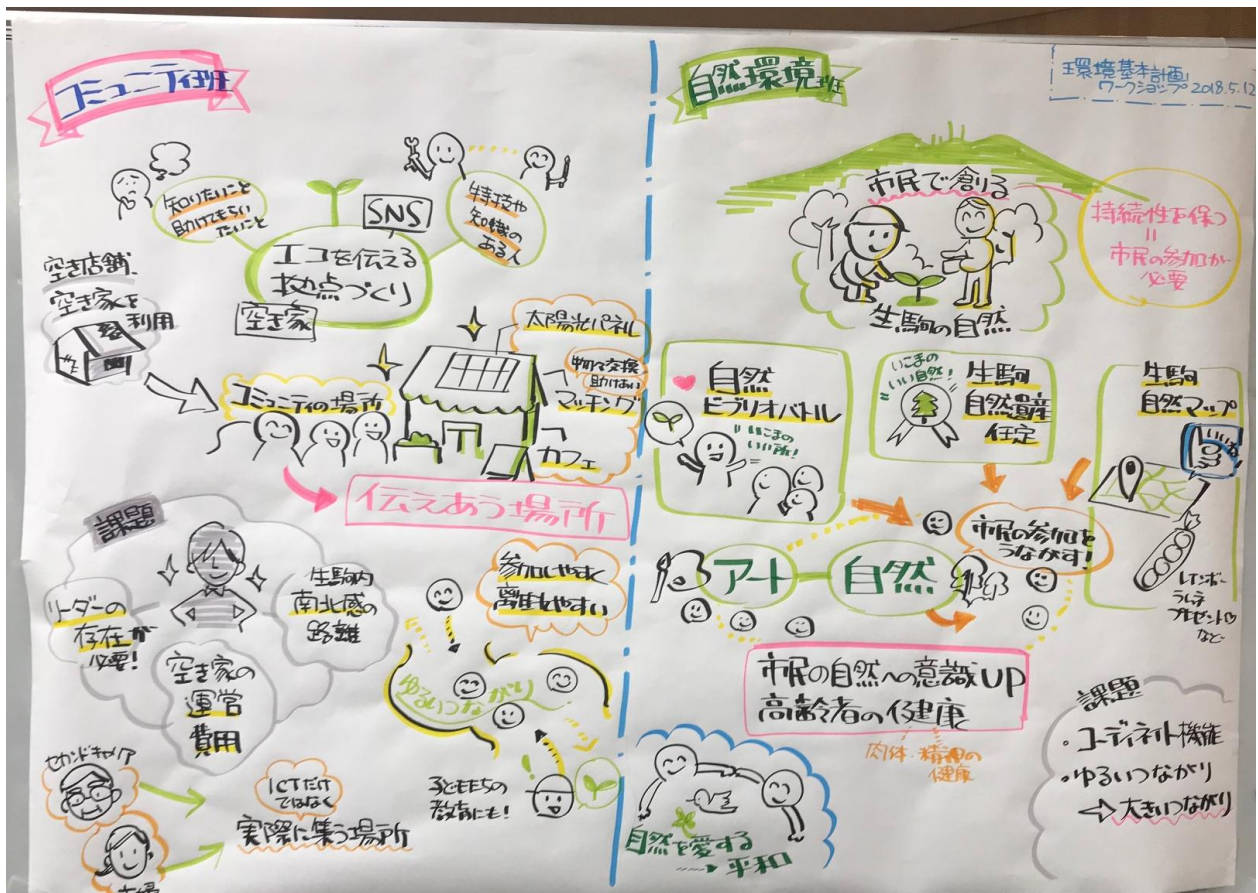 コミュニティ班
知りたいこと
助けてもらい
たいこと
SNS
特技や
知識の
ある人
エコを伝える
拠点づくり
空き家
空き店舗、
空き家を
利用
太陽光パネル
物々交換
助けあい
マッチング
カフェ
コミュニティの場所
伝えあう場所
課題
リーダーの
存在が
必要!
生駒内
南北感の
距離
空き家の
運営
費用
参加しやすく
離脱しやすい
ゆるいつながり
セカンドキャリア
主婦
ICTだけ
ではなく
実際に集う場所
子どもたちの
教育にも!
自然環境班
環境基本計画
ワークショップ 2018.5.12
市民で創る
生駒の自然
持続性を保つ
=
市民の参加が
必要
自然
ビブリオバトル
いこまの
いい所!
いこまの
いい自然!
生駒
自然遺産
任定
生駒
自然マップ
いいね
レインボー
ラムネ
プレゼント♡
など
市民の参加を
うながす!
アート
自然
市民の自然への意識UP
高齢者の健康
肉体・精神の
健康
自然を愛する
平和
課題
・コーディネイト機能
・ゆるいつながり
⇨ 大きいつながり